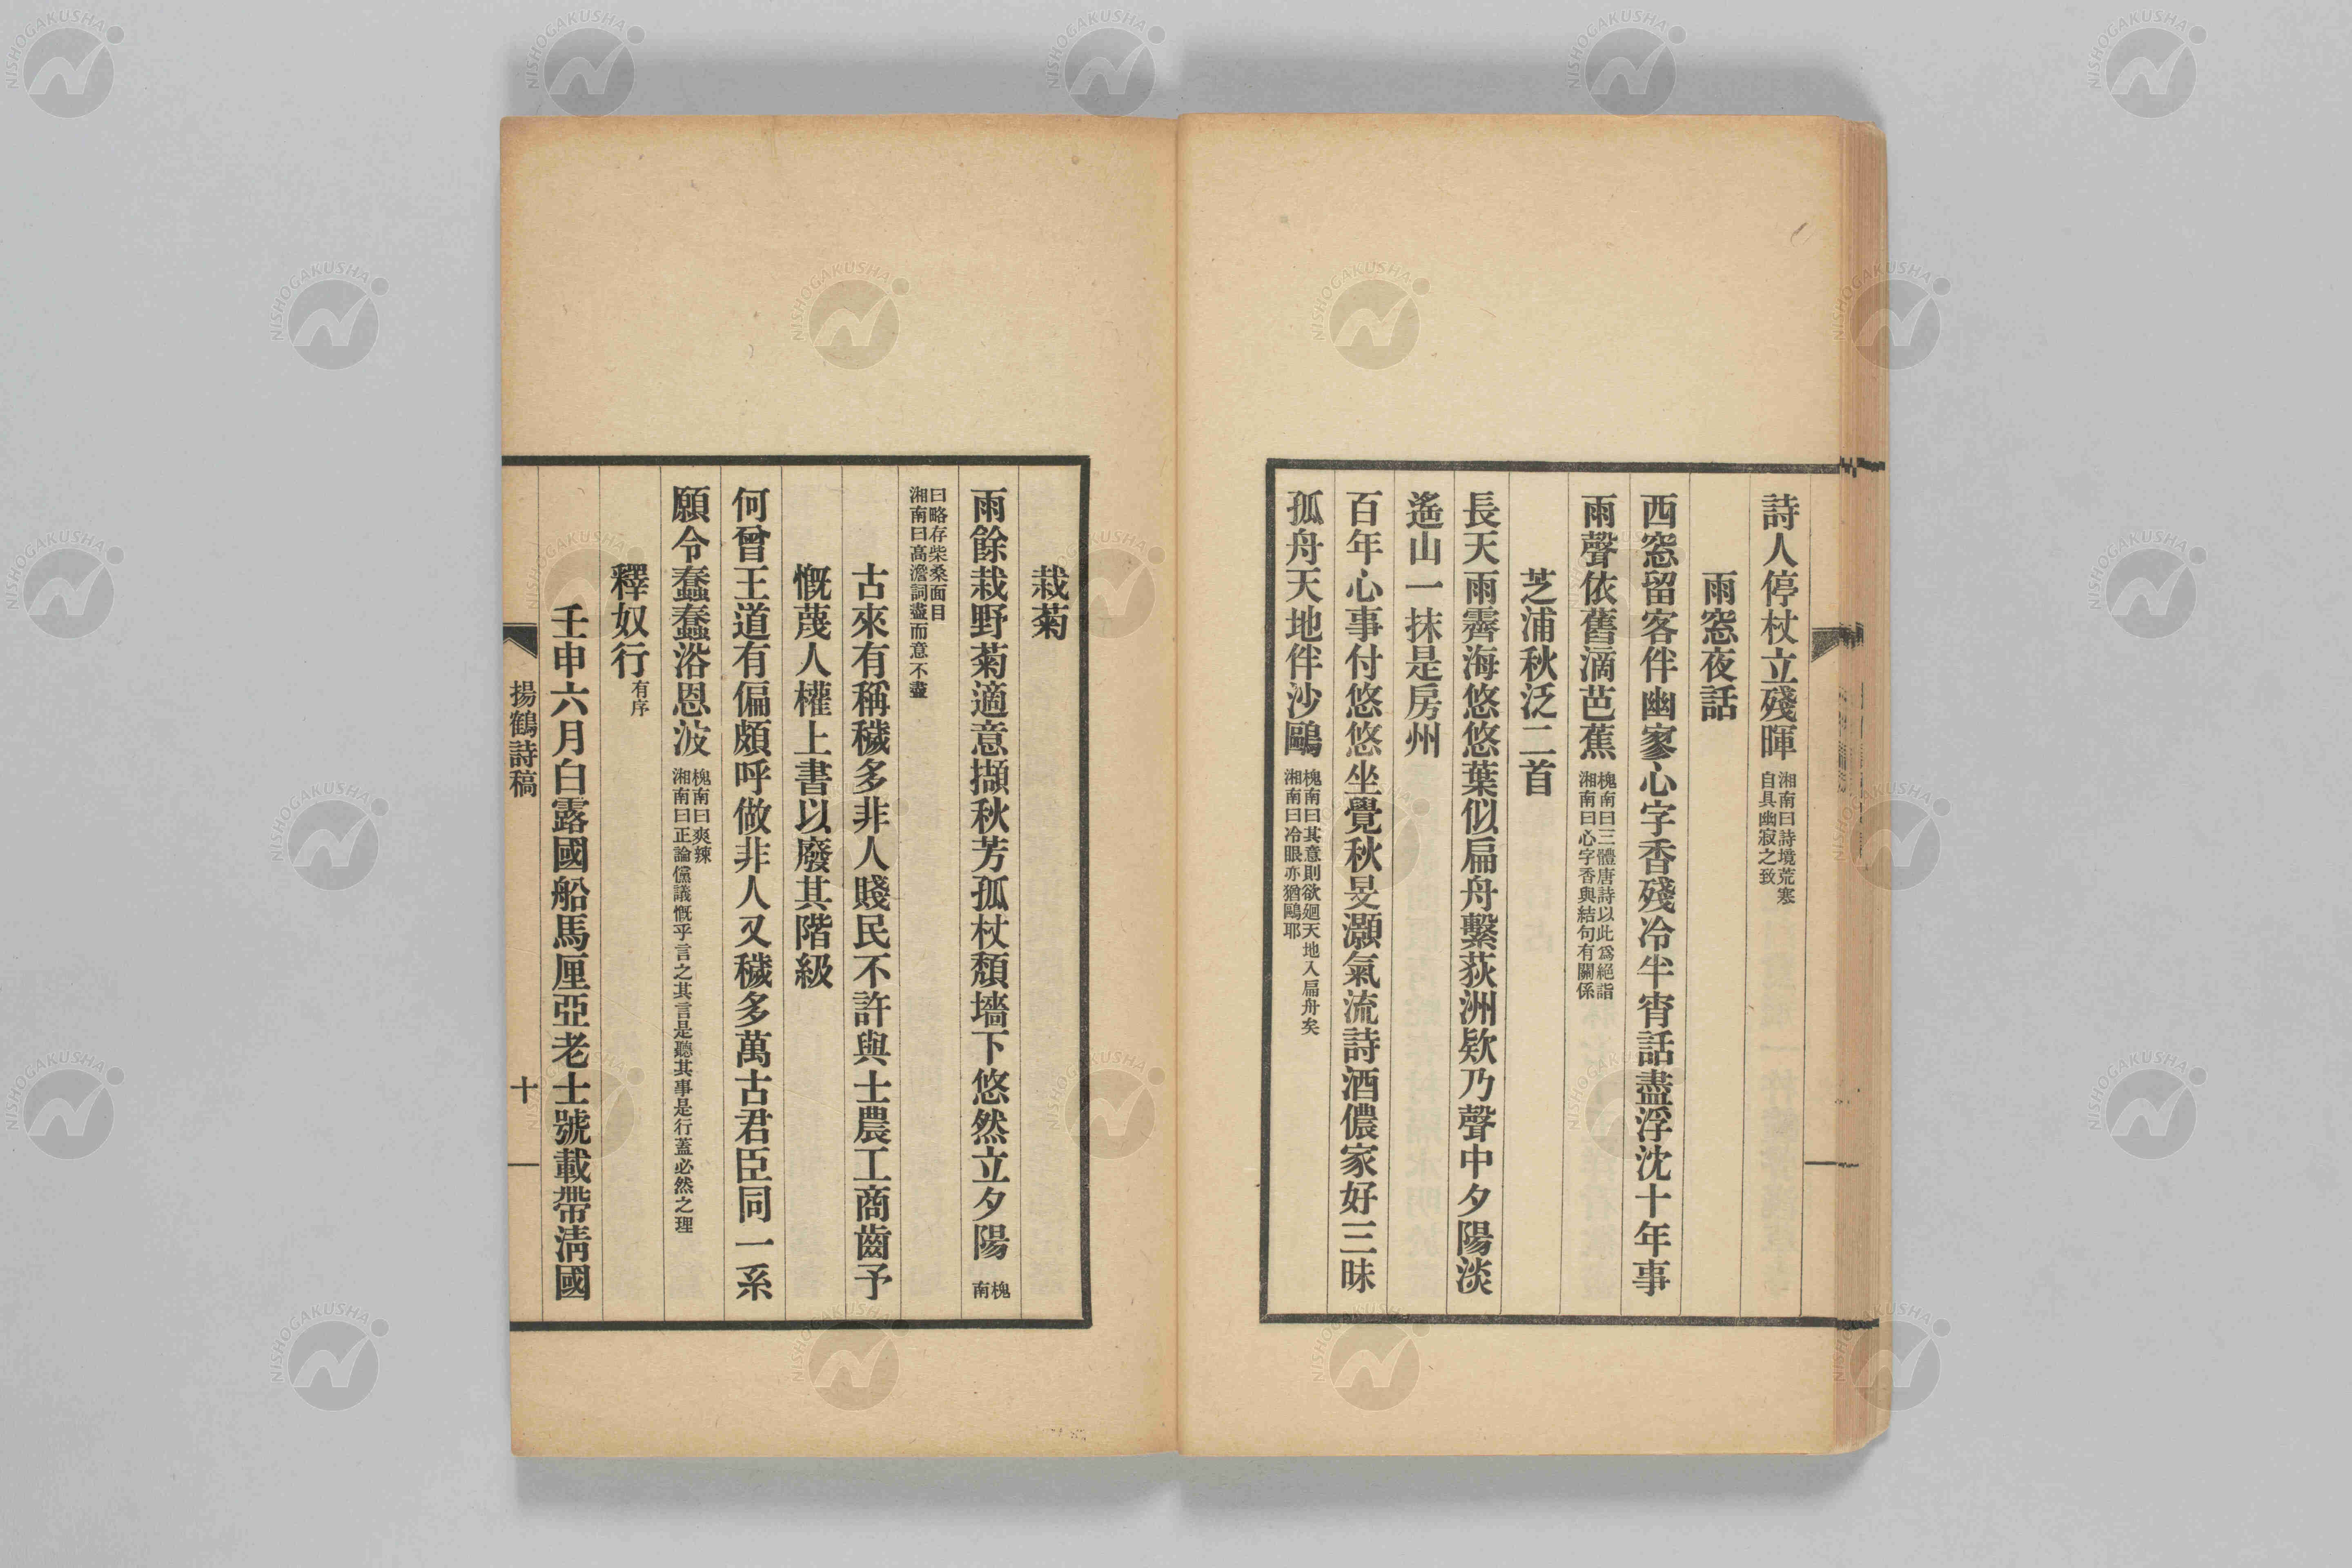 詩人停杖立殘暉 湘南曰詩境荒寒
自具幽寂之致
雨窓夜話
西窓留客伴幽家心字香殘冷半宵話盡浮沈十年事
雨聲依舊滴芭蕉 槐南曰三體唐詩以此爲絕詣
湘南曰心字香與結句有關係
芝浦秋泛二首
長天雨霽海悠悠葉似扁舟繫荻洲欵乃聲中夕陽淡
遙山一抹是房州
百年心事付悠悠坐覺秋旻灝氣流詩酒儂家好三昧
孤舟天地伴沙鷗 槐南曰其意則欲廻天地入扁舟矣
湘南曰冷眼亦猶鷗耶
栽菊
雨餘栽野菊適意擷秋芳孤杖頽墻下悠然立夕陽 槐
南
曰略存柴桑面目
湘南曰高澹詞盡而意不盡
古來有稱穢多非人賤民不許與士農工商齒予
慨蔑人權上書以廢其階級
何曾王道有偏頗呼做非人又穢多萬古君臣同一系
願令蠢蠢浴恩波 槐南曰爽辣
湘南曰正論儻議慨乎言之其言是聽其事是行蓋必然之理
釋奴行 有序
壬申六月白露國船馬厘亞老士號載帶淸國
揚鶴詩稿
十
NISHOGAKUSHA